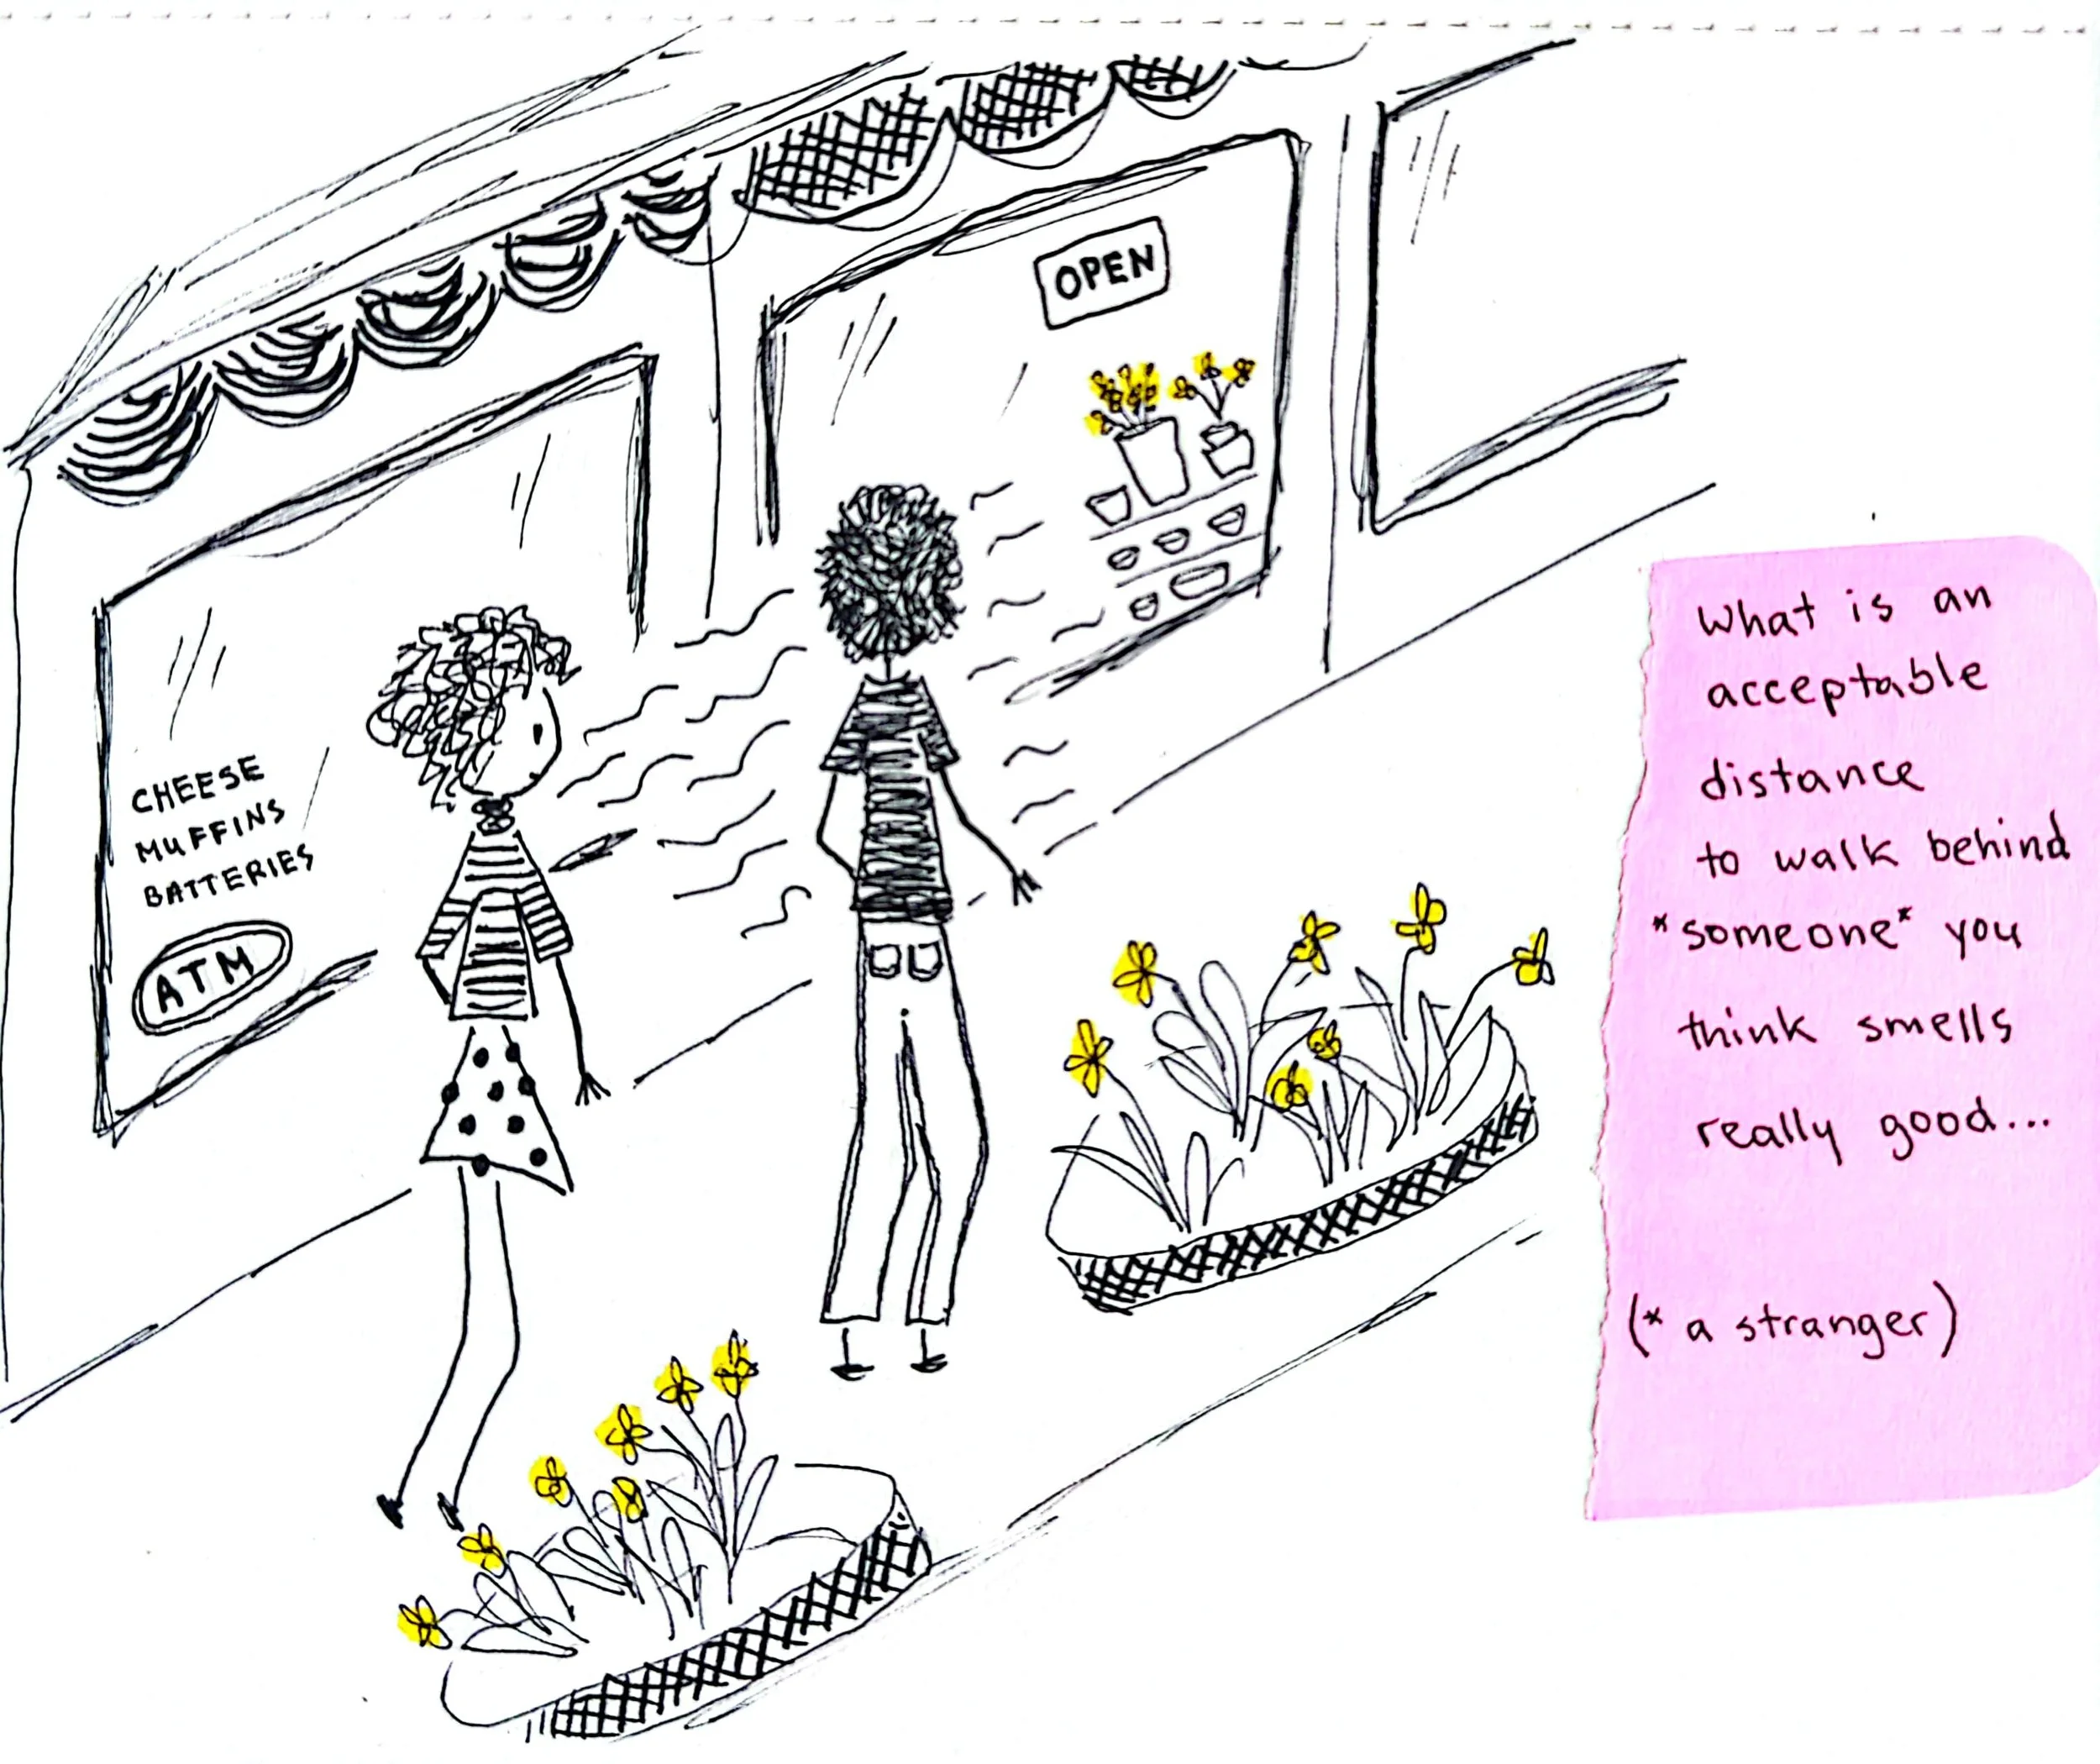 OPEN
CHEESE
MUFFINS
BATTERIES
ATM
What is an
acceptable
distance
to walk behind
*someone* you
think smells
really good...
(* a stranger)